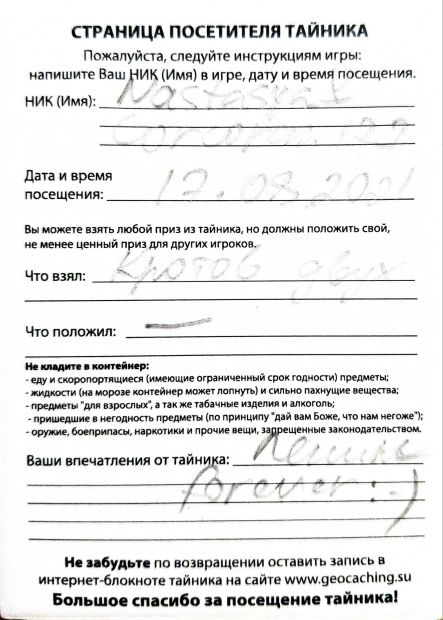 СТРАНИЦА ПОСЕТИТЕЛЯ ТАЙНИКА
Пожалуйста, следуйте инструкциям игры:
напишите Ваш НИК (Имя) в игре, дату и время посещения.
НИК (Имя):
Дата и время
посещения: 17.08.2021
Вы можете взять любой приз из тайника, но должны положить свой,
не менее ценный приз для других игроков.
Что взял: Кротов двух
Что положил: —
Не кладите в контейнер:
- еду и скоропортящиеся (имеющие ограниченный срок годности) предметы;
- жидкости (на морозе контейнер может лопнуть) и сильно пахнущие вещества;
- предметы "для взрослых", а так же табачные изделия и алкоголь;
- пришедшие в негодность предметы (по принципу "дай вам Боже, что нам негоже");
- оружие, боеприпасы, наркотики и прочие вещи, запрещенные законодательством.
Ваши впечатления от тайника:
forever :-)
Не забудьте по возвращении оставить запись в
интернет-блокноте тайника на сайте www.geocaching.su
Большое спасибо за посещение тайника!